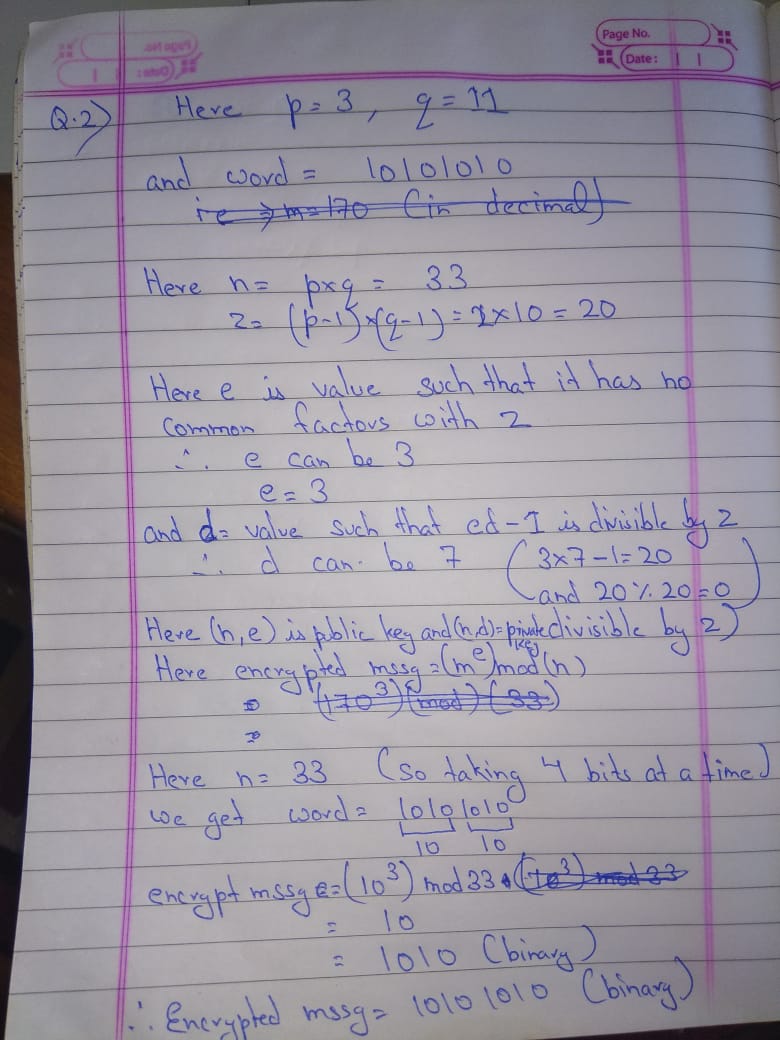 Page No.
Date :
Q.2) Here p = 3, q = 11
and word = 10101010
i.e ⇒ m = 170 (in decimal)
Here n = p×q = 33
z = (p-1)×(q-1) = 2×10 = 20
Here e is value such that it has no
common factors with z
∴ e can be 3
e = 3
and d = value such that ed-1 is divisible by z
∴ d can be 7 (3×7-1=20
and 20 % 20 = 0
Here (n,e) is public key and (n,d) = private key divisible by z)
Here encrypted mssg = (m^e) mod (n)
= (170^3) (mod) (33)
=
Here n = 33 (so taking 4 bits at a time)
we get word = 1010 1010
10 10
encrypt mssg c = (10^3) mod 33 (10^3) mod 33
= 10
= 1010 (binary)
∴ Encrypted mssg = 1010 1010 (binary)